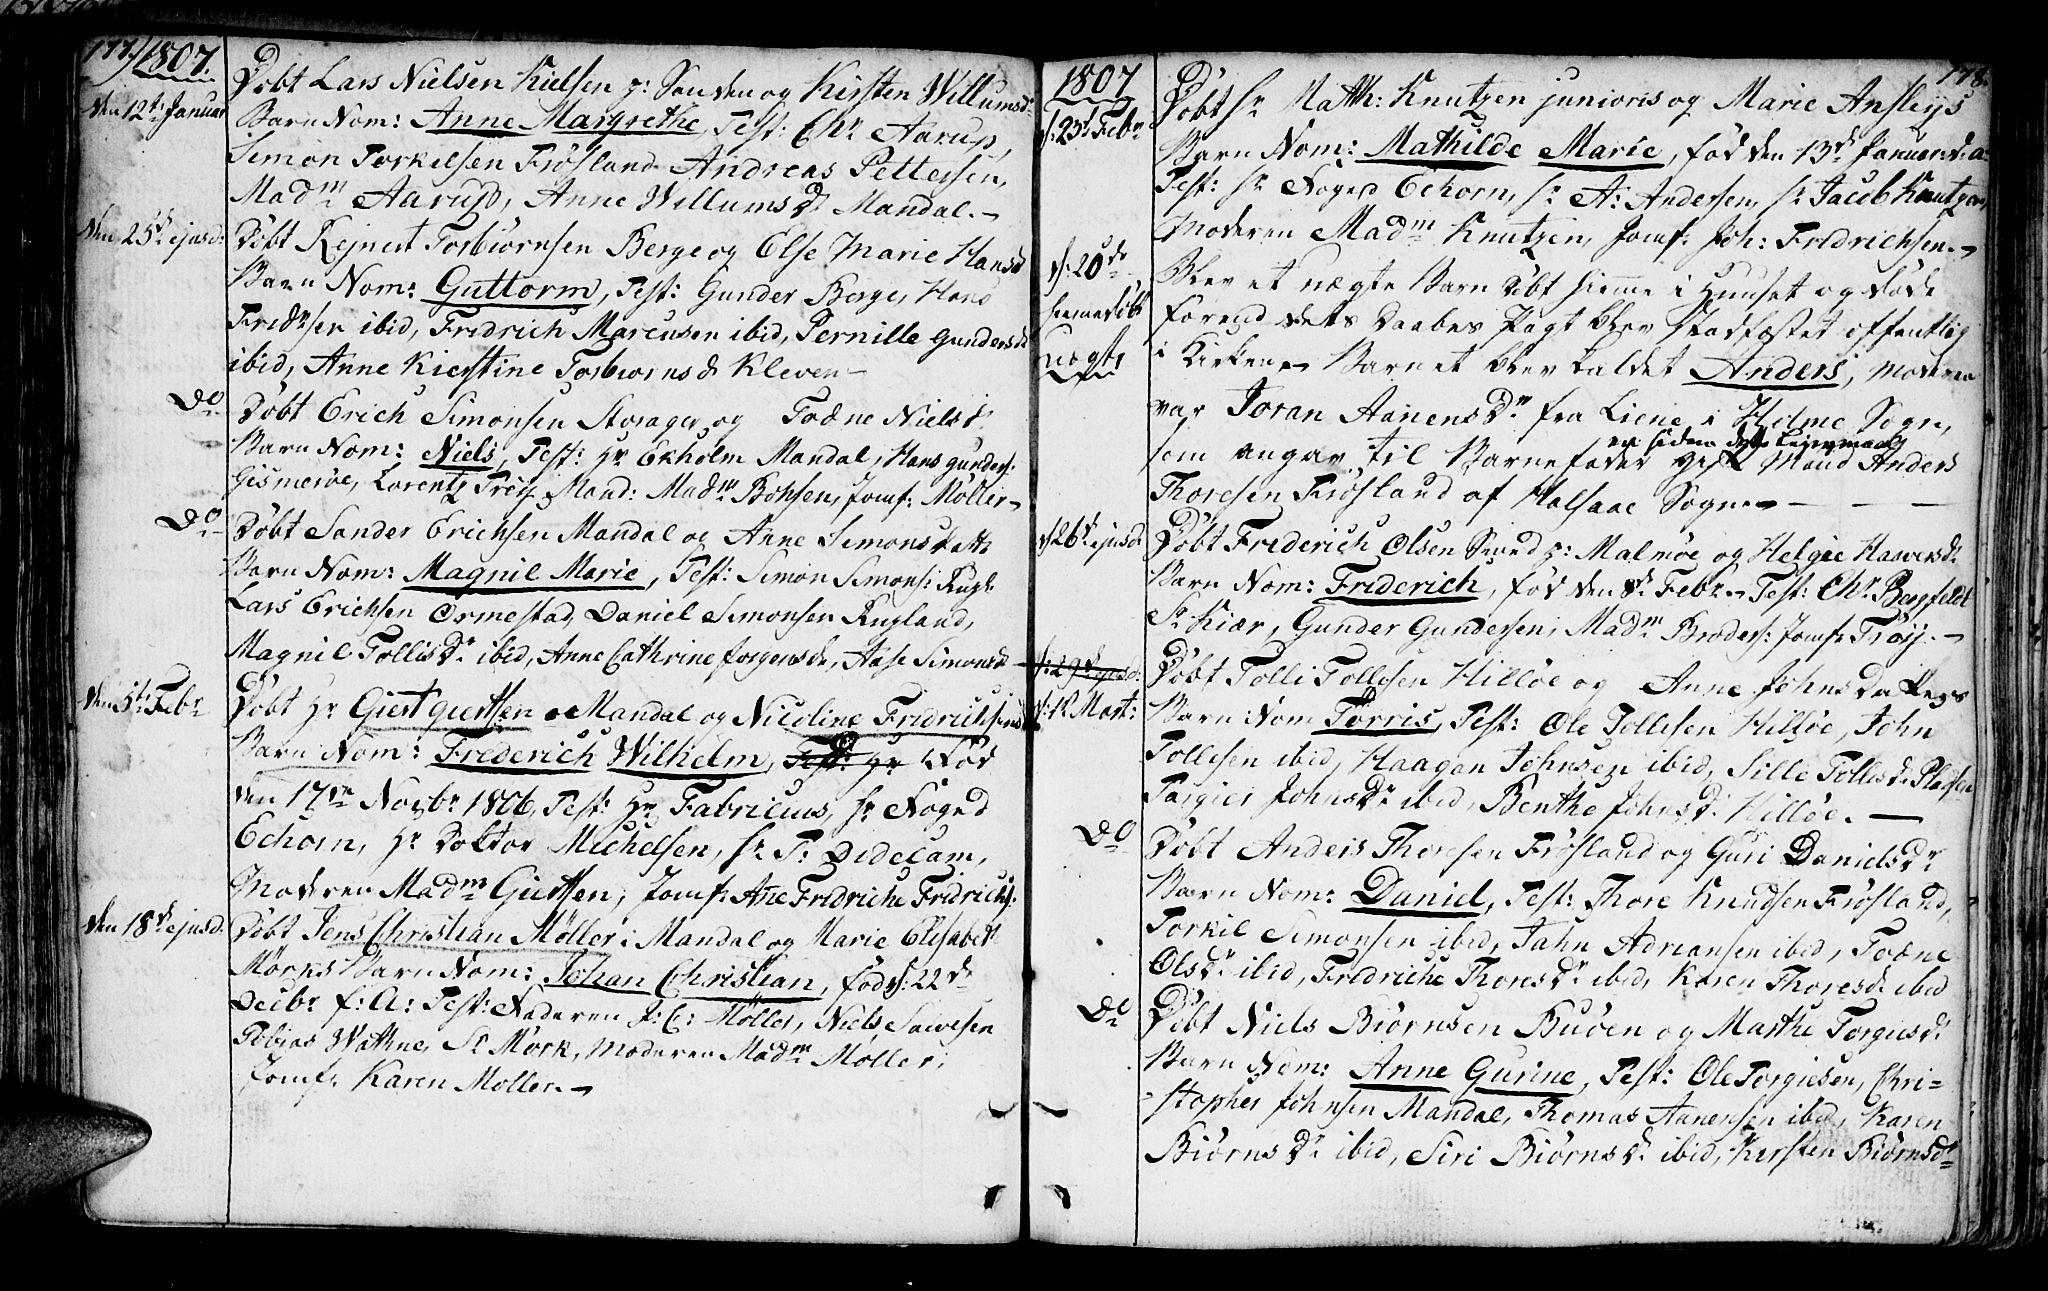 177.
1807.
den 12t Januar
Døbt Lars Nielsen Kielsen p: Sanden og Kirsten Willumsd
Barn Nom: Anne Margrethe, Test: Chr Aarup,
Simon Torkelsen Frøsland Andreas Pettersen,
Madm Aarup, Anne Willumsdr Mandal.
den 25d ejusd:
Døbt Rejnert Torbiørnsen Berge og Else Marie Hansd
Barn Nom: Guttorm, Test: Gunder Berge, Hans
Fredksen ibid, Fredrich Marcusen ibid, Pernille Gundersd
ibid, Anne Kierstine Torbiørnsd Kleven
Do
Døbt Erich Simonsen Storager og Todne Nielsd
Barn Nom: Niels, Test: Hr Ekholm Mandal, Hans Gunders:
Gismerøe, Lorentz Trøy Mand: Madm Bohsen, Jomf: Møller
Do
Døbt Sander Erichsen Mandal og Anne Simonsdatt
Barn Nom: Magnil Marie, Test: Simon Simons: Rugl:
Lars Erichsen Ormestad, Daniel Simonsen Rugland,
Magnil Tollisdr ibid, Anne Cathrine Jørgensd, Aase Simonsd
den 5t Febr
Døbt Hr Giert Giertsen Mandal og Nicoline Fridrichsens
Barn Nom: Frederich Wilhelm, Test: Hr Fød
den 17de Novbr 1806, Test: Hr Fabricius, Hr Foged
Echorn, Hr Doktor Michelsen, Sr T: Didecam,
Moderen Madm Giertsen, Jomf: Ane Fridriche Fridrichs:
den 18d ejusd.
Døbt Jens Christian Møller i Mandal og Marie Elisabeth
Mørks Barn Nom: Johan Christian, fød d: 22d
Decbr f: A: Test: Faderen J: C: Møller, Niels Sawesen
Tobias Wathne, Sr Mørk, Moderen Madm Møller,
Jomfr Karen Møller.
178.
1807
d: 23d Febr
Døbt Sr Matth: Knutzen junioris og Marie Ansleijs
Barn Nom: Mathilde Marie, fød den 13d Januar: d: a:
Test: Hr Foged Echorn, Sr A: Andersen, Sr Jacob Knutzen,
Moderen Madm Knutzen, Jomf: Joh: Fredrichsen.
d: 20d
hiemedøbt
uægte
Blev et uægte Barn døbt hiemme i Hunset og døde
førend dets Daabes Pagt blev stadfæstet offentlig
i Kirken Barnet blev kaldet Anders, Moderen
var Joran Aanensdr fra Liene i Holme Sogn,
som angav til Barnefader gift Mand Anders
Thoresen Frøsland af Halsaae Sogn
d: 26d ejusd
Døbt Frederich Olsen Svind p: Malmøe og Helgie Haaversd
Barn Nom: Friderich, fød den 8d Febr. Test: Chr Bergfeldt
Sr Kiær, Gunder Gundersen, Madm Broders: Jomfr Trøy.
d: 29d ejusd.
d: 1t Mart:
Døbt Tolli Tollisen Hilløe og Anne Johnsdatters
Barn Nom Tørris, Test: Ole Tollisen Hilløe, John
Tollisen ibid, Haagan Johnsen ibid, Sille Tollisd Pladsen
Torgier Johnsdr ibid, Benthe Johnsd: Hilløe.
Do
Døbt Anders Thoresen Frøsland og Guri Danielsdr
Barn Nom: Daniel, Test: Thore Knudsen Frøsland,
Torkil Simonsen ibid, Jahn Adriansen ibid, Todne
Olsdr ibid, Fredriche Thoresdr ibid, Karen Thoresd ibid
Do
Døbt Niels Biørnsen Buøen og Marthe Torgiesd
Barn Nom: Anne Gurine, Test: Ole Torgiesen, Chri=
=stopher Johnsen Mandal, Thomas Aanensen ibid, Karen
Biørnsdr ibid, Siri Biørnsdr ibid, Kirsten Biørnsd